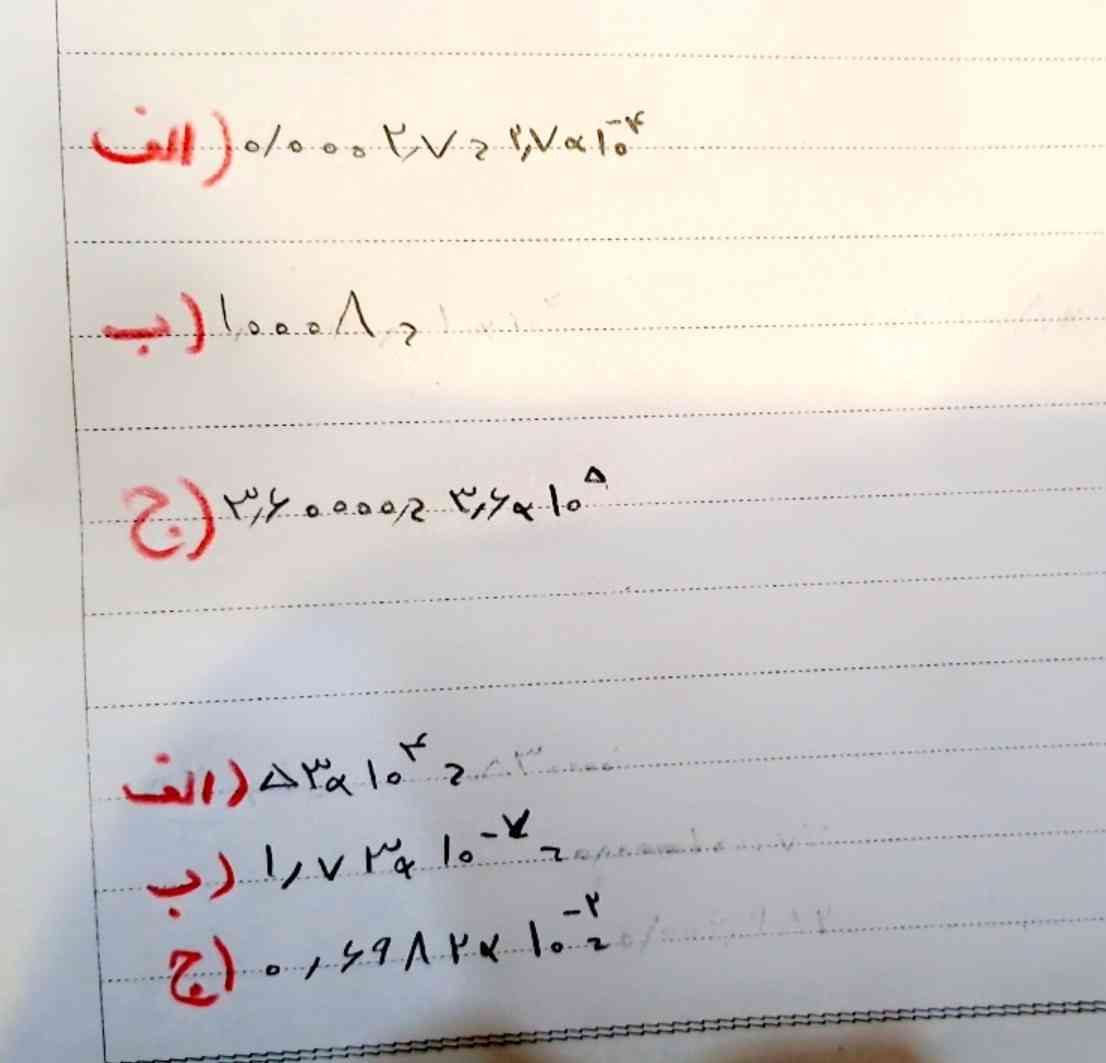 الف) ۰/۰۰۰۲٫۷ = ۲٫۷ × ۱۰^-۴
ب) ۱۰۰۰۸ =
ج) ۳٫۶۰۰۰۰۰ = ۳٫۶ × ۱۰^۵
الف) ۵۳ × ۱۰^۴ =
ب) ۱٫۷۳ × ۱۰^-۷ =
ج) ۰٫۶۹۸۲ × ۱۰^-۲ =